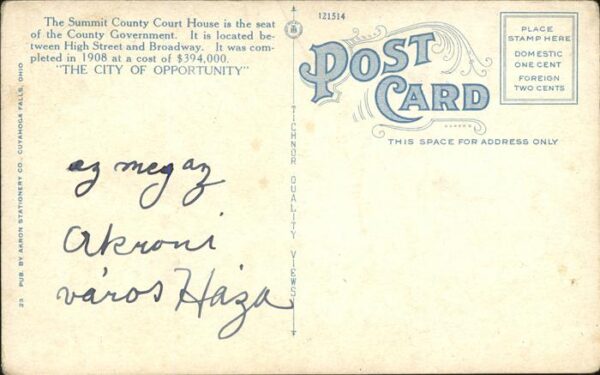 The Summit County Court House is the seat
of the County Government. It is located be-
tween High Street and Broadway. It was com-
pleted in 1908 at a cost of $394,000.
"THE CITY OF OPPORTUNITY"
23 PUB. BY AKRON STATIONERY CO., CUYAHOGA FALLS, OHIO
ez meg az
Akroni
város Háza
TICHNOR QUALITY VIEWS
121514
POST
CARD
THIS SPACE FOR ADDRESS ONLY
PLACE
STAMP HERE
DOMESTIC
ONE CENT
FOREIGN
TWO CENTS